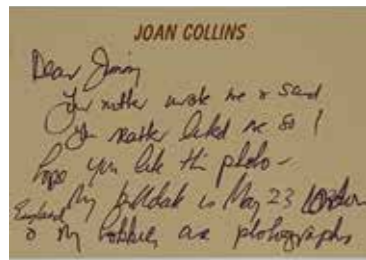 JOAN COLLINS
Dear Jimmy
Your mother wrote me & said
you rather liked me so I
hope you like this photo -
My birthdate is May 23 London
England
& My hobbies are photographs